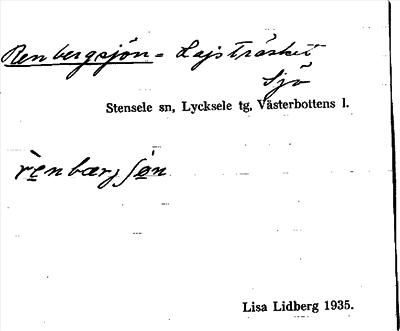 Renbergsjön = Lajsträsket
Sjö
Stensele sn, Lycksele tg, Västerbottens l.
rènbærjsjøn
Lisa Lidberg 1935.